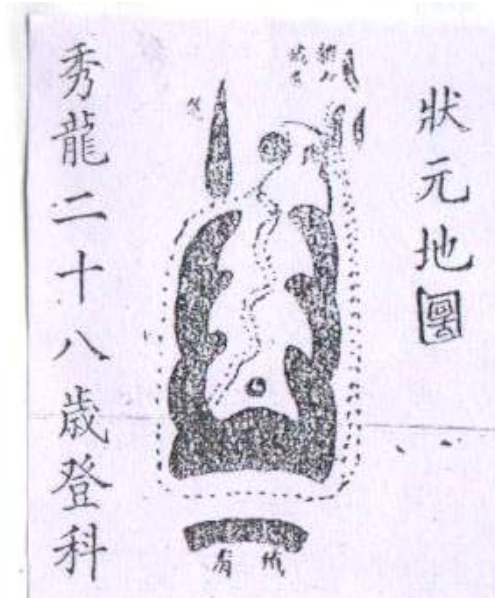 狀元地圖
秀龍二十八歲登科